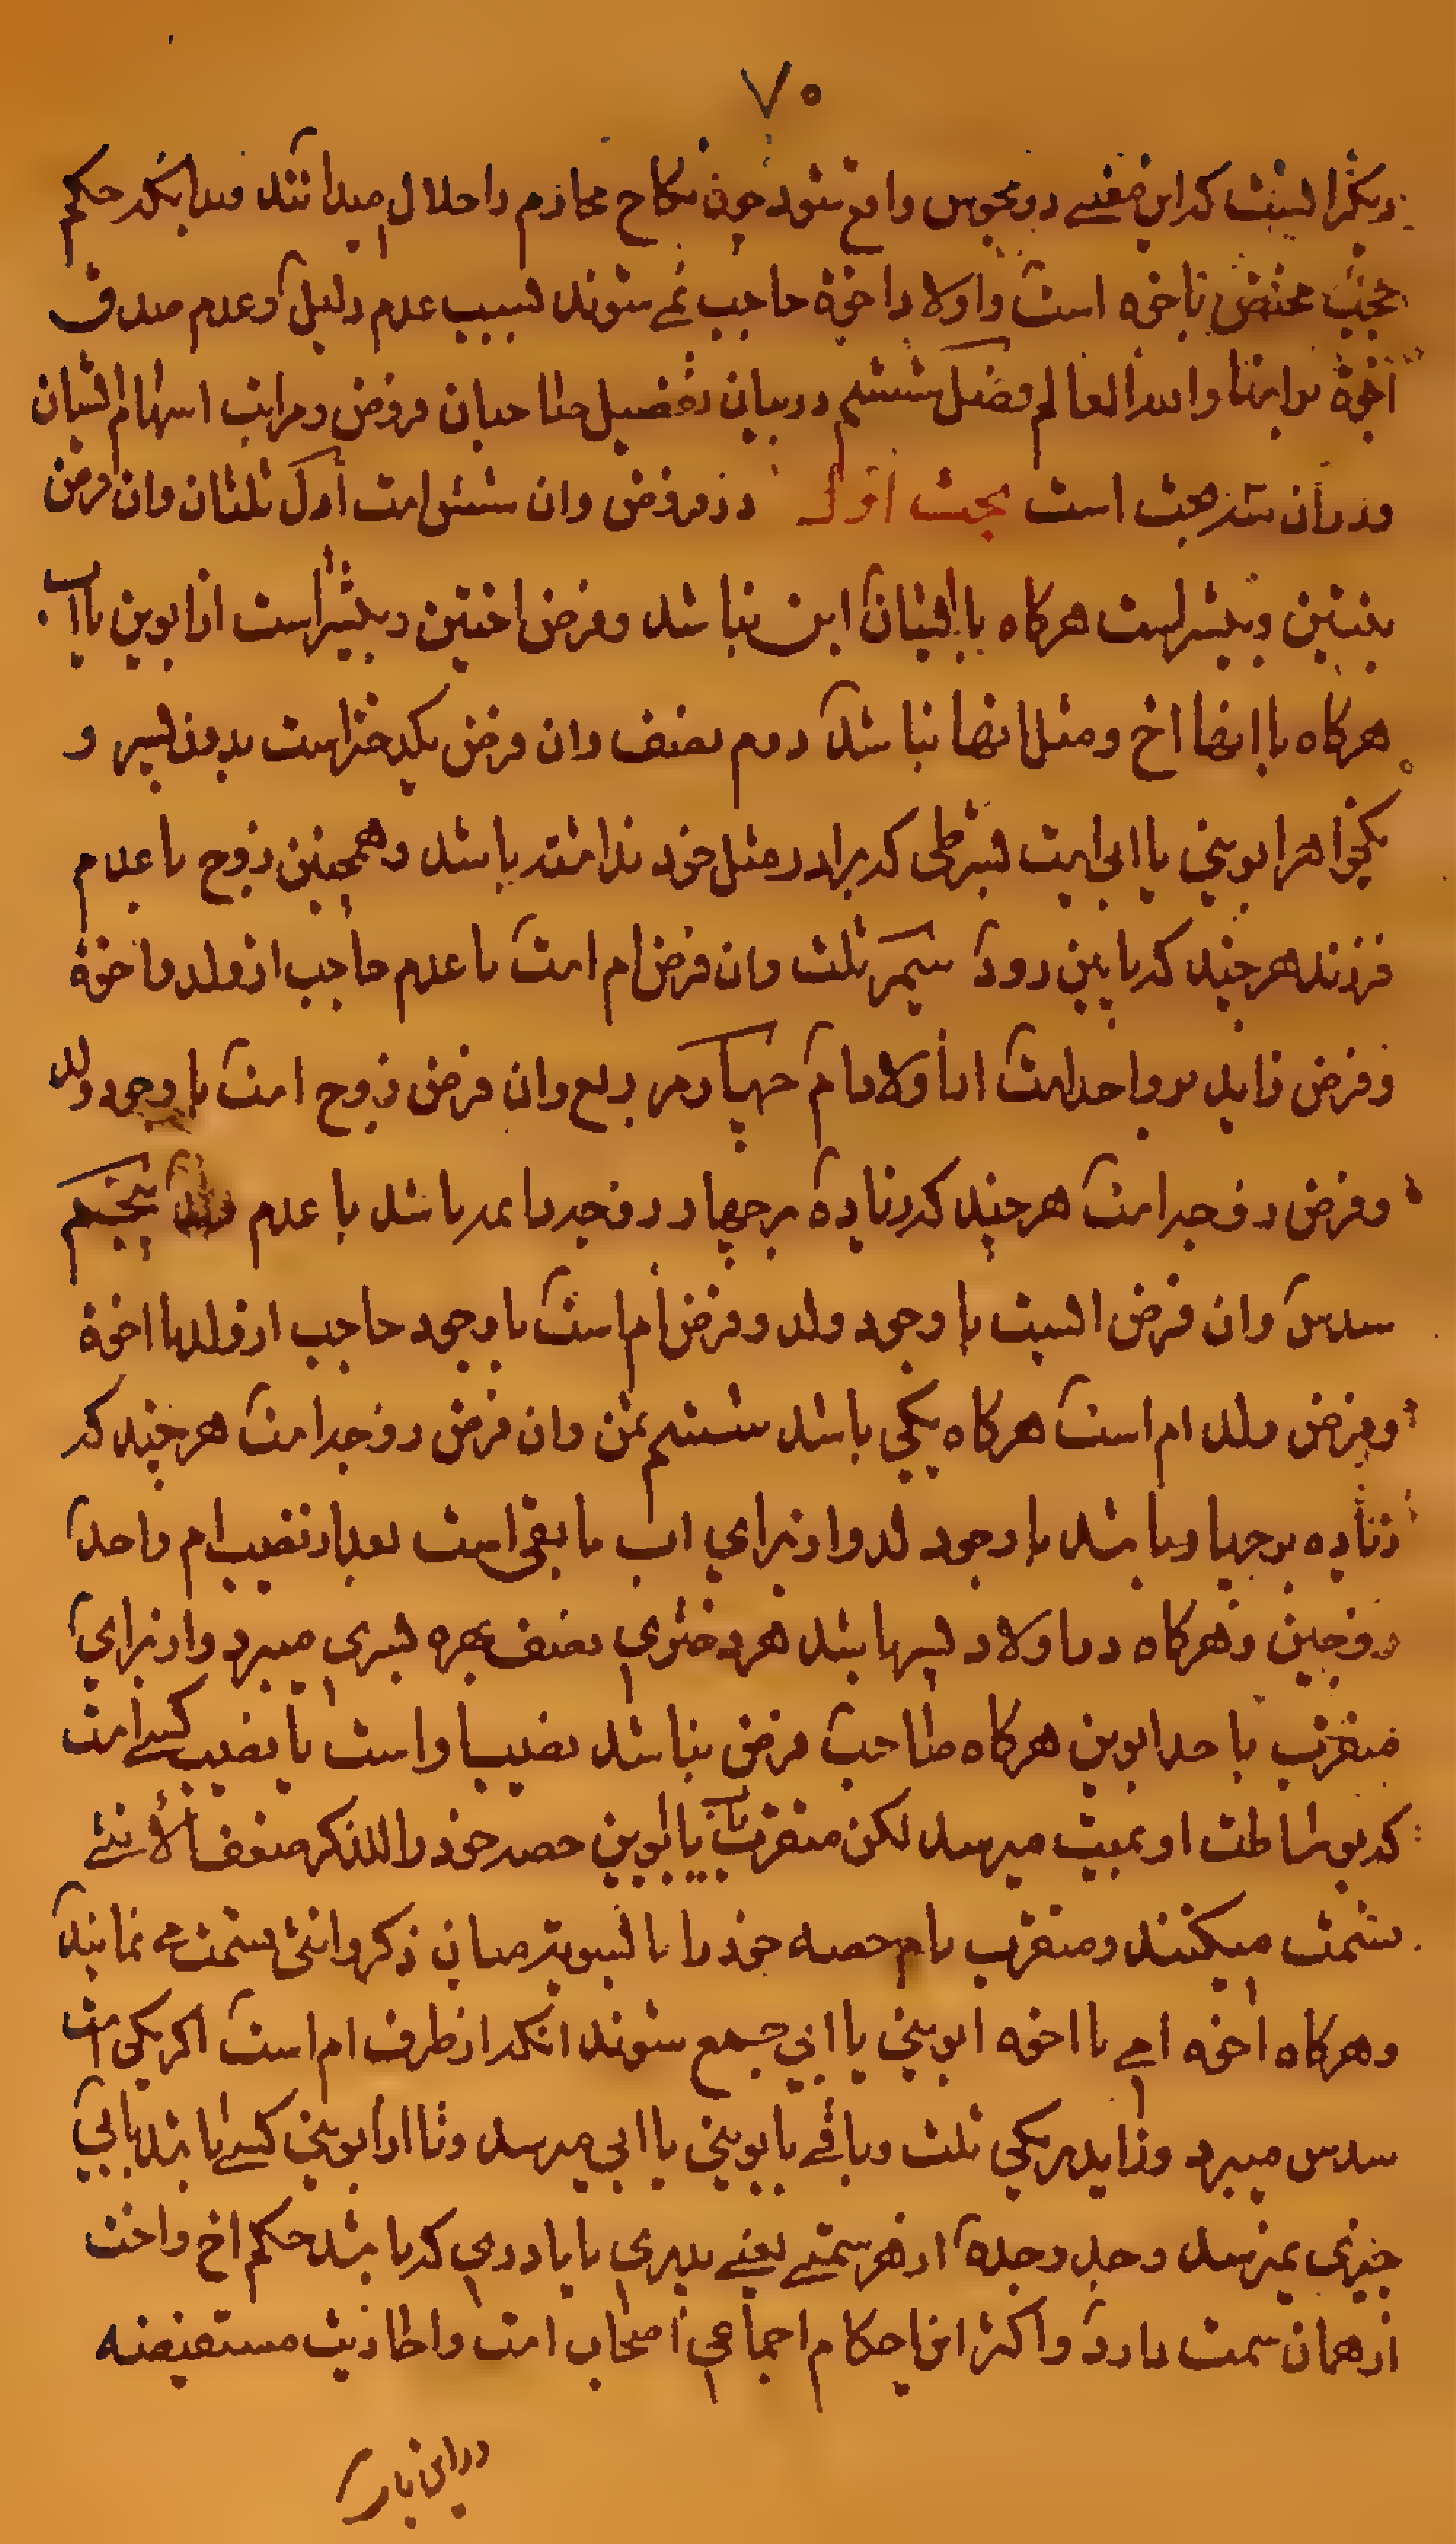 ۷۰
دیگر آنست که این معنی در مجوس واقع شود چون نکاح محارم را حلال میدانند بدانکه حکم
حجب مختص باخوه است و اولاد اخوة حاجب نمی شوند بسبب عدم دلیل و عدم صدق
اخوة بر ابنا و الله العالم فصل ششم در بیان تفصیل صاحبان فروض و مراتب اسهام ایشان
و در آن سه بحث است بحث اول در فروض وان شش است اول ثلثان وان فرض
بنتین و بیشتر است هرکاه با ایشان ابن نباشد و فرض اختین و بیشتر است از ابوین یا اب
هرکاه با انها اخ و مثل انها نباشد دوم نصف وان فرض یکدختر است بدون پسر و
یکخواهر ابوینی یا ابی است بشرطی که برادر مثل خود نداشته باشد و همچنین زوج با عدم
فرزند هرچند که پایین رود سیم ثلث وان فرض ام است با عدم حاجب از ولد و اخوة
و فرض زاید بر واحد است از اولاد ام چهارم ربع وان فرض زوج است با وجود ولد
و فرض زوجه است هرچند که زیاده بر چهار زوجه دائمه باشد با عدم ولد پنجم
سدس وان فرض اب است با وجود ولد و فرض ام است با وجود حاجب از ولد یا اخوة
و فرض ولد ام است هرکاه یکی باشد ششم ثمن وان فرض زوجه است هرچند که
زیاده بر چهار باشد با وجود ولد و از برای اب ما بقی است بعد از نصیب ام و احد
زوجین و هرکاه در اولاد پسر باشد هر دختری نصف بهره پسری میبرد و از برای
متقرب باحد ابوین هرکاه صاحب فرض نباشد نصیب او است یا نصیب کسی است
که بوساطت او بمیت میرسد لکن متقرب بابوین حصه خود را للذکر ضعف الأنثی
قسمت میکنند و متقرب بام حصه خود را بالسویه میان ذکر و انثی قسمت می نمایند
و هرکاه اخوه امی با اخوه ابوینی یا ابی جمع شوند انکه از طرف ام است اکر یکی است
سدس میبرد و زاید بر یکی ثلث و باقی بابوینی یا ابی میرسد و تا از ابوینی کسی باشد بابی
چیزی نمیرسد و جد و جده از هر سمتی یعنی پدری یا مادری که باشد حکم اخ و اخت
از همان سمت دارد و اکثر این احکام اجماعی اصحاب است و احادیث مستفیضه
در این باب